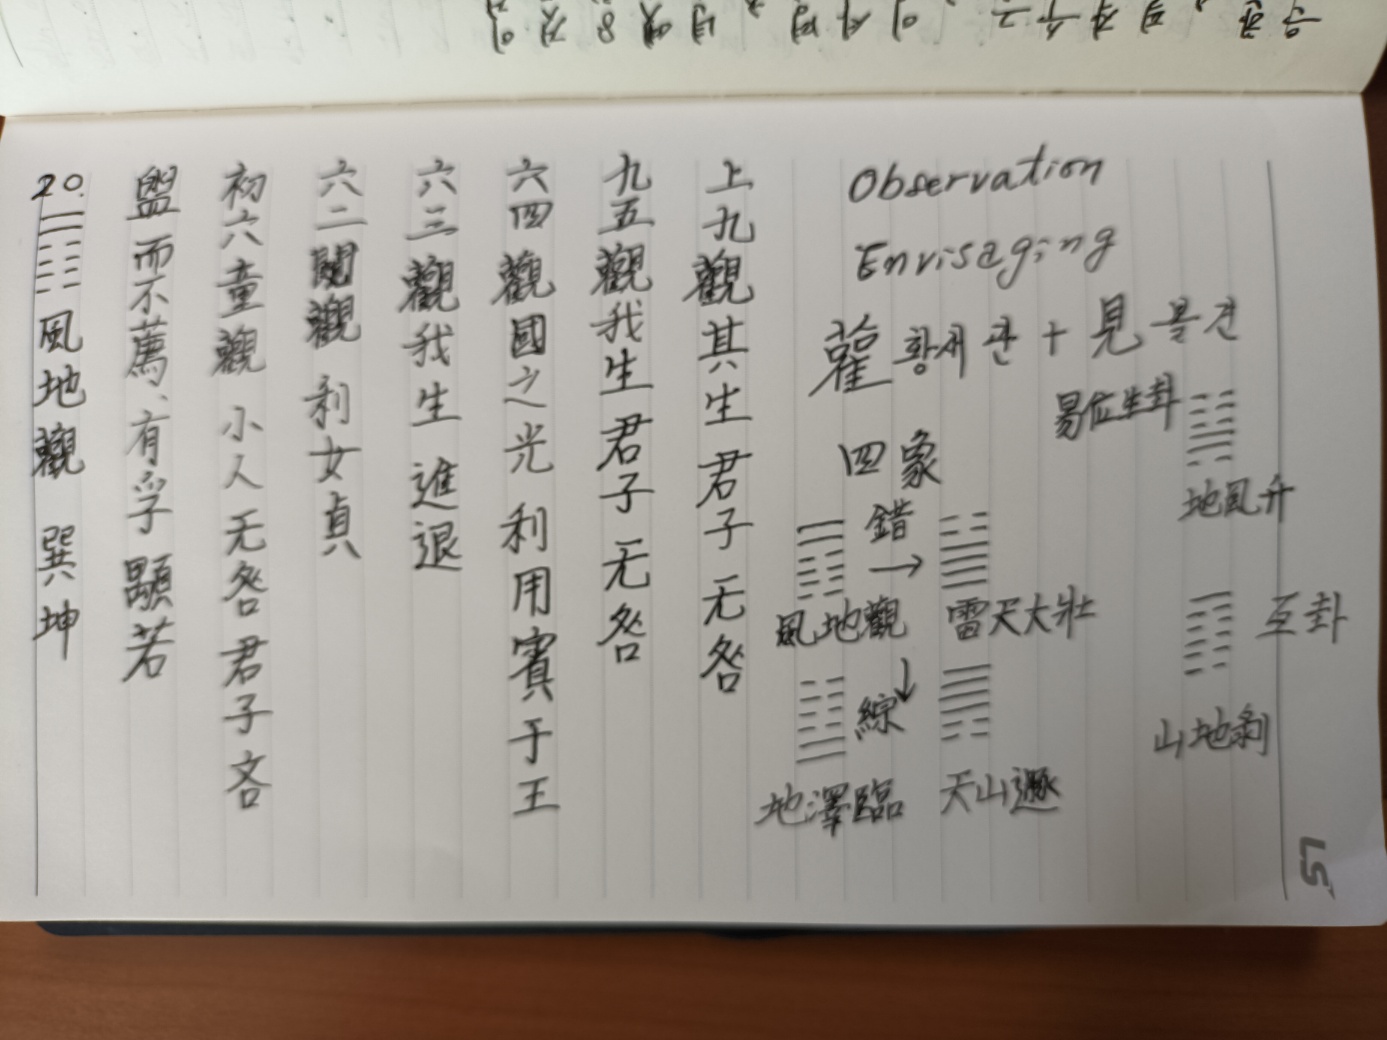 20.
風地觀 巽坤
盥而不薦、有孚顒若
初六童觀 小人无咎君子吝
六二闚觀 利女貞
六三觀我生 進退
六四觀國之光 利用賓于王
九五觀我生君子无咎
上九觀其生君子无咎
Observation
Envisaging
雚 황새 관 + 見 볼 견
四象
錯
→
風地觀
雷天大壯
↓
綜
地澤臨
天山遯
易位生卦
地風升
互卦
山地剝
57